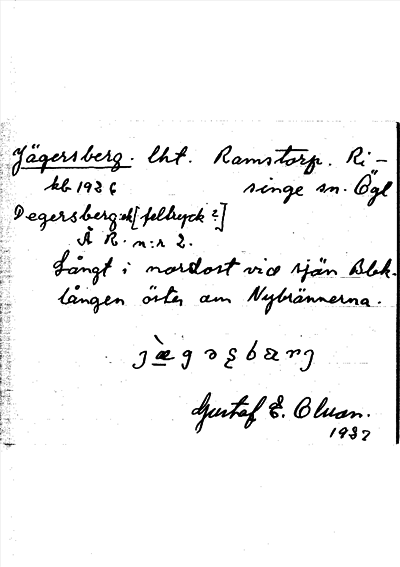 Jägersberg. lht. Ramstorp. Ri-
kb 1926 singe sn. Ögl
Degersberg: ek [feltryck?]
Å R. n:r 2.
Långt i nordost vid sjön Blek-
lången öster om Nybrännerna.
Gustaf E. Olsson.
1937